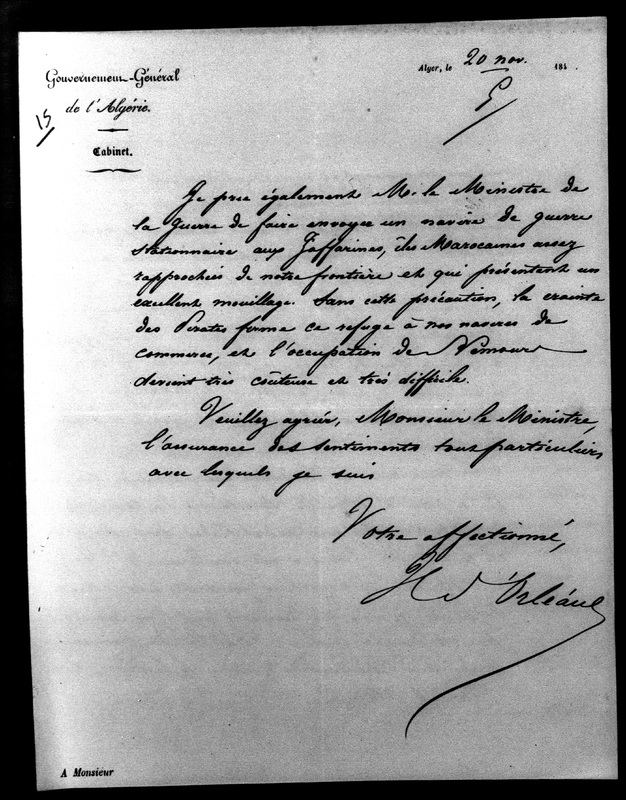 Gouvernement-Général
de l'Algérie.
Cabinet.
15
Alger, le 20 nov. 184
Je prie également M. le Ministre de
la Guerre de faire envoyer un navire de guerre
stationnaire aux Zaffarines, îles Marocaines assez
rapprochées de notre frontière et qui présentent un
excellent mouillage. Sans cette précaution, la crainte
des Pirates ferme ce refuge à nos navires de
commerce, et l'occupation de Nemours
devient très coûteuse et très difficile.
Veuillez agréer, Monsieur le Ministre,
l'assurance des sentiments tous particuliers
avec lesquels je suis
Votre affectionné,
H d'Orléans
A Monsieur